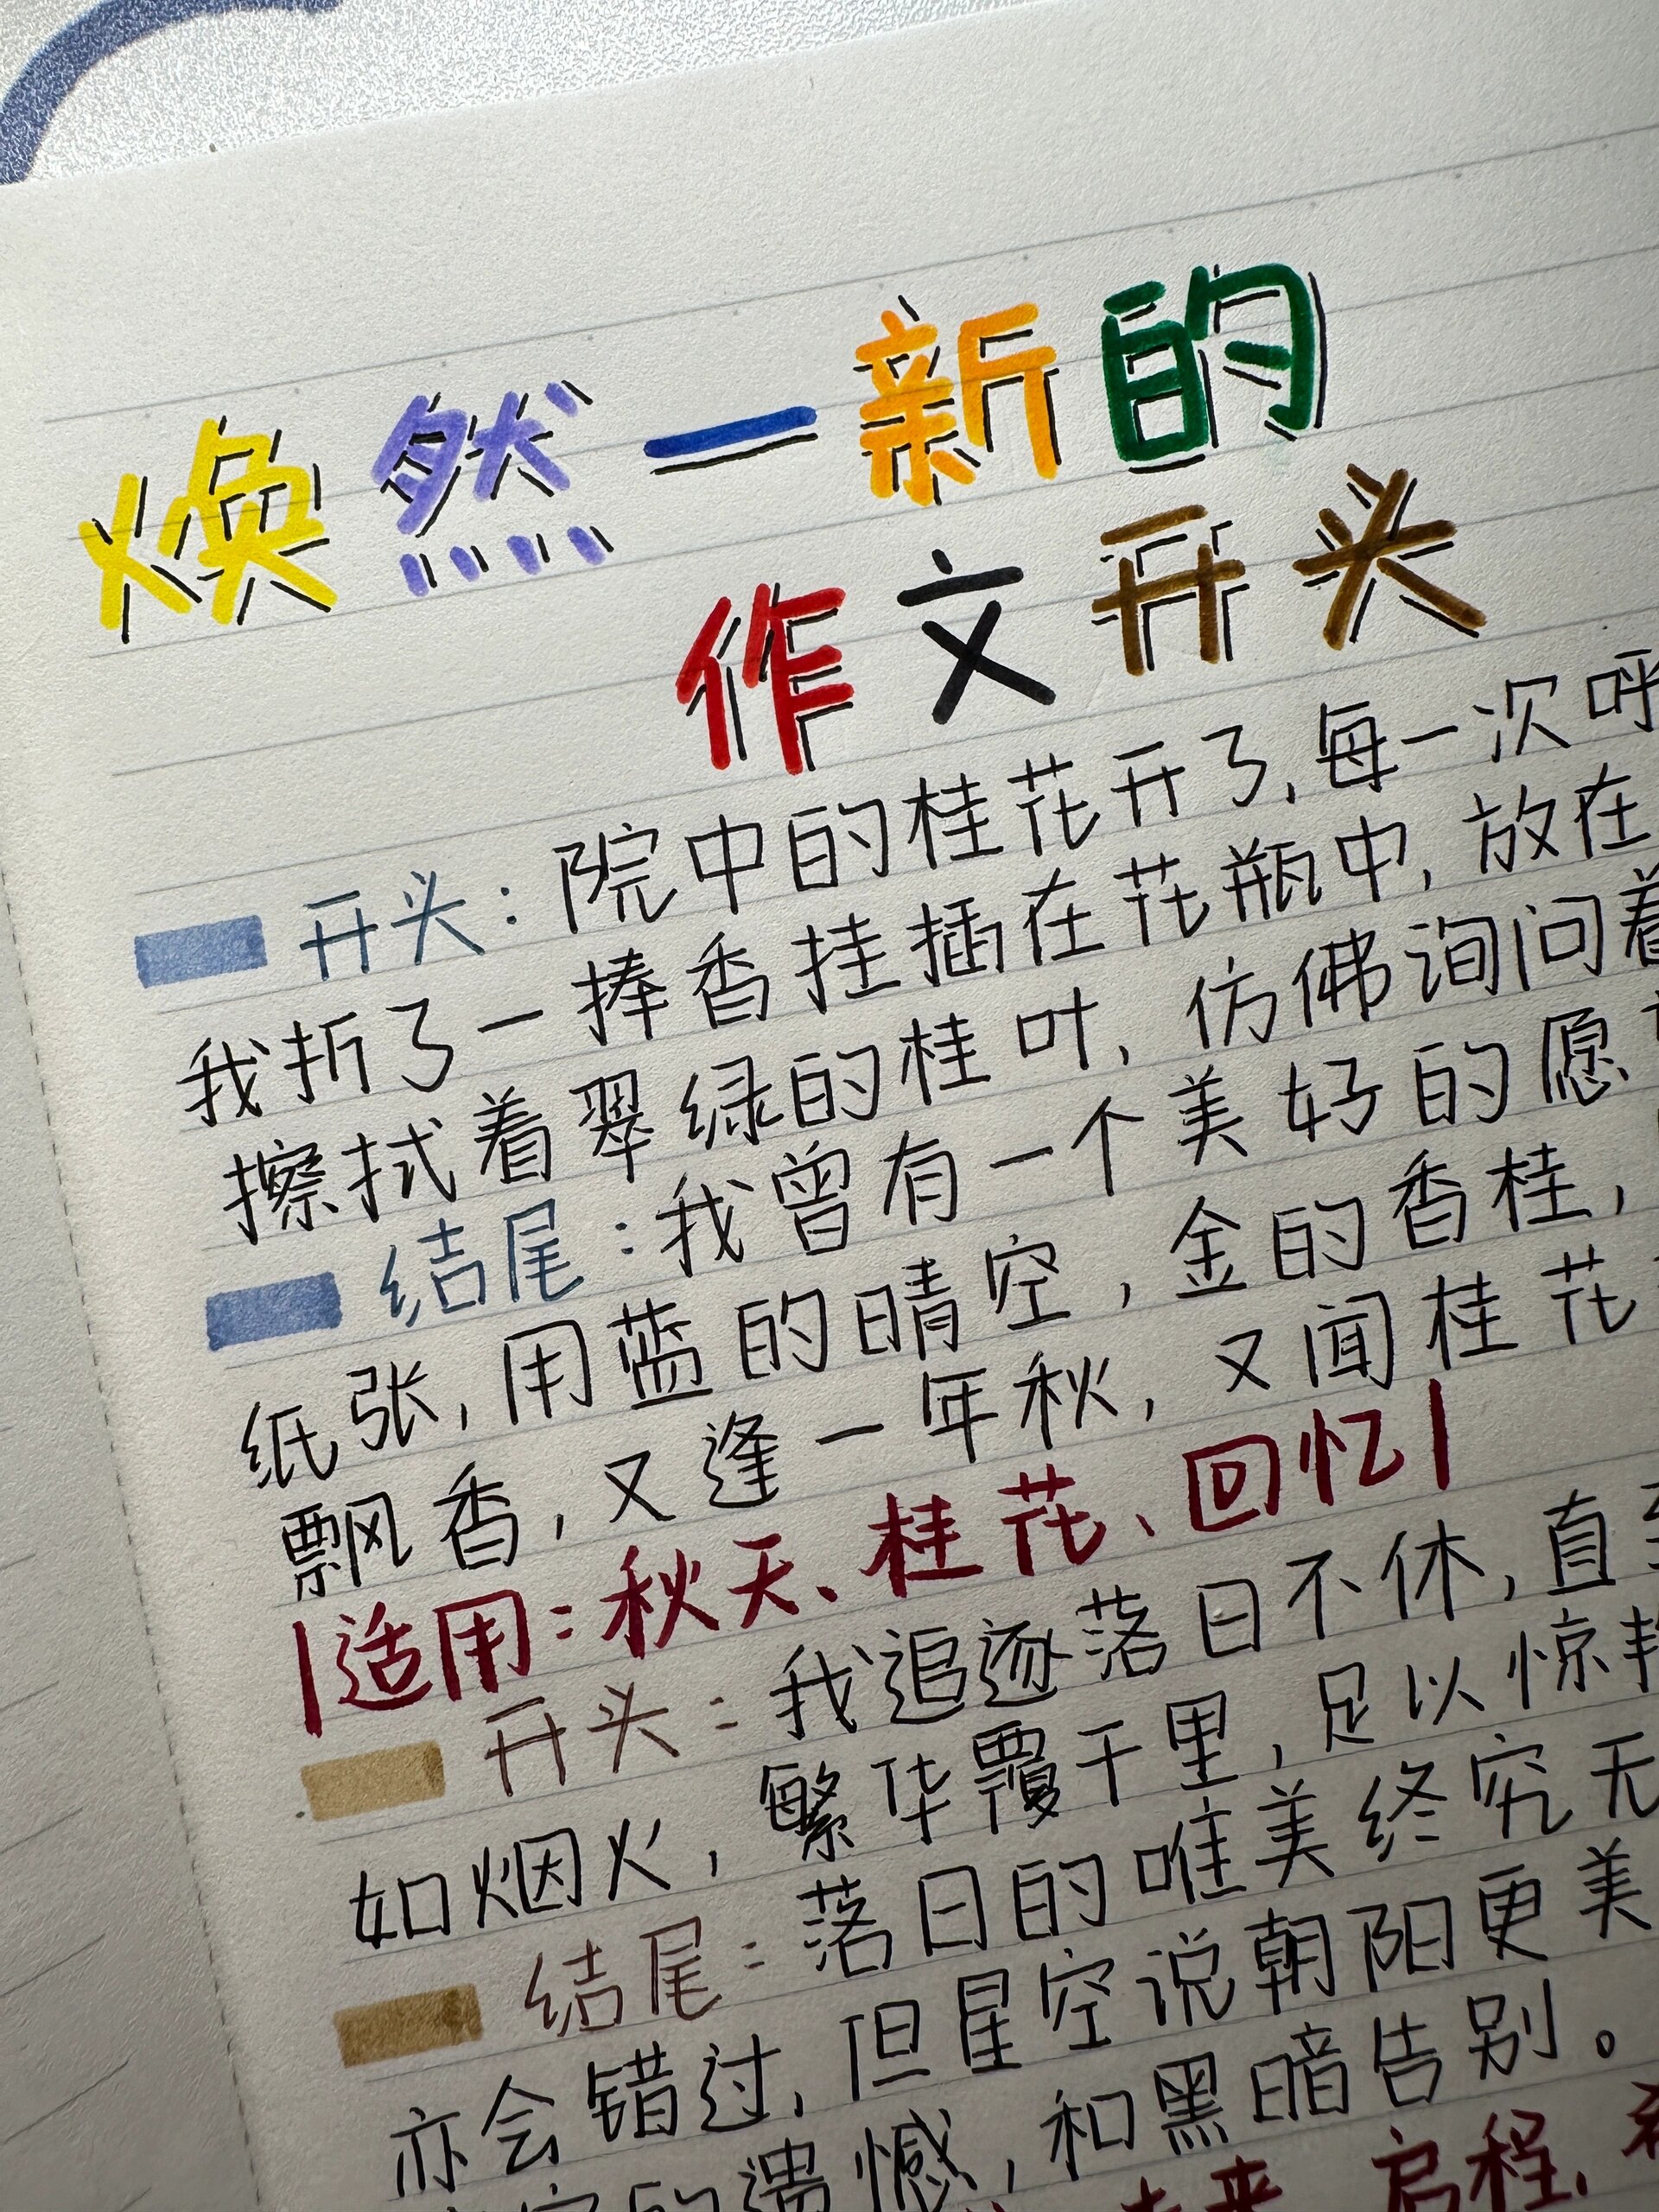 焕然一新的
作文开头
开头：院中的桂花开了，每一次呼
我折了一捧香挂插在花瓶中，放在
擦拭着翠绿的桂叶，仿佛询问着
结尾：我曾有一个美好的愿
纸张，用蓝的晴空，金的香桂，
飘香，又逢一年秋，又闻桂花
|适用：秋天、桂花、回忆|
开头：我追逐落日不休，直
如烟火，繁华覆千里，足以惊
结尾：落日的唯美终究无
亦会错过，但星空说朝阳更美
的遗憾，和黑暗告别。
未来、启程、